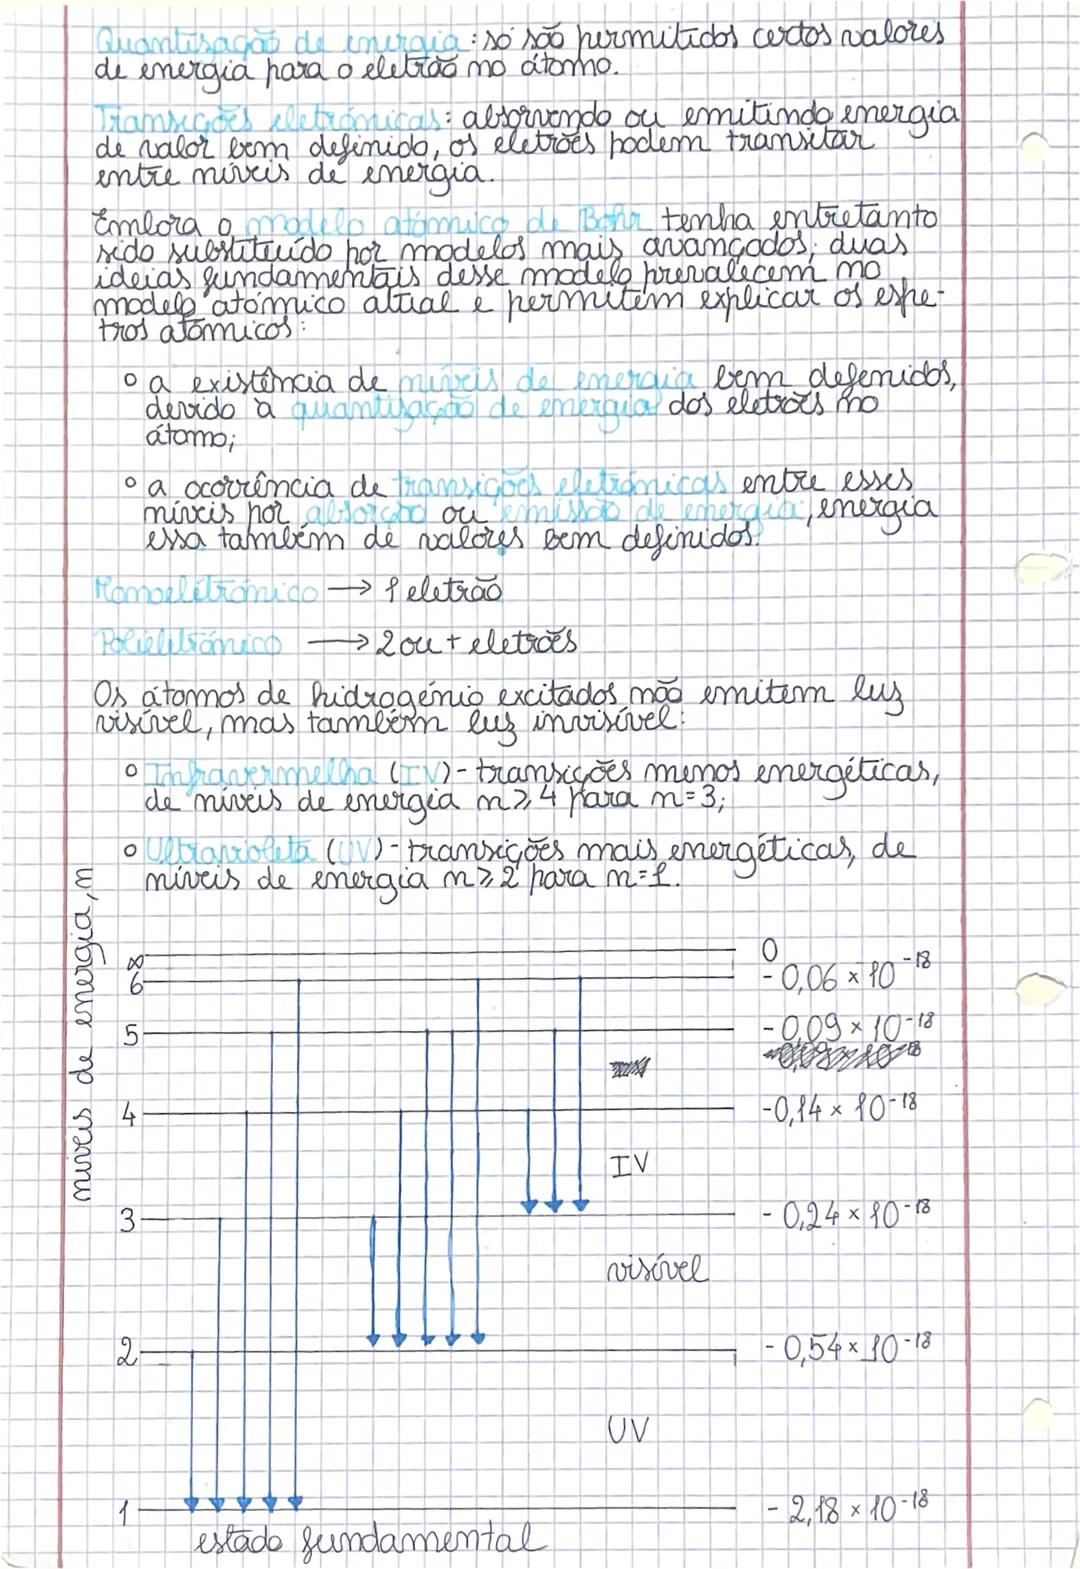 Quantização de energia: só são permitidos certos valores
de energia para o eletrão no átomo.
Transições eletrónicas: absorvendo ou emitindo energia
de valor bem definido, os eletrões podem transitar
entre níveis de energia.
Embora o modelo atómico de Bohr tenha entretanto
sido substituído por modelos mais avançados, duas
ideias fundamentais desse modelo prevalecem no
modelo atómico atual e permitem explicar os espe-
tros atómicos:
o a existência de níveis de energia bem defenidos,
devido à quantização de energia dos eletrões no
átomo;
o a ocorrência de transições eletrónicas entre esses
níveis por absorção ou emissão de energia, energia
essa também de valores bem definidos.
Monoeletrónico → 1 eletrão
Polieletrónico → 2 ou + eletrões
Os átomos de hidrogénio excitados não emitem luz
visível, mas também luz invisível:
o Infravermelha (IV) - transições menos energéticas,
de níveis de energia n≥4 para n=3;
o Ultravioleta (UV) - transições mais energéticas, de
níveis de energia n≥2 para n=1.
níveis de energia, n
∞ 0
6 - 0,06 × 10⁻¹⁸
5 - 0,09 × 10⁻¹⁸
4 - 0,14 × 10⁻¹⁸
IV
3 - 0,24 × 10⁻¹⁸
visível
2 - 0,54 × 10⁻¹⁸
UV
1 - 2,18 × 10⁻¹⁸
estado fundamental